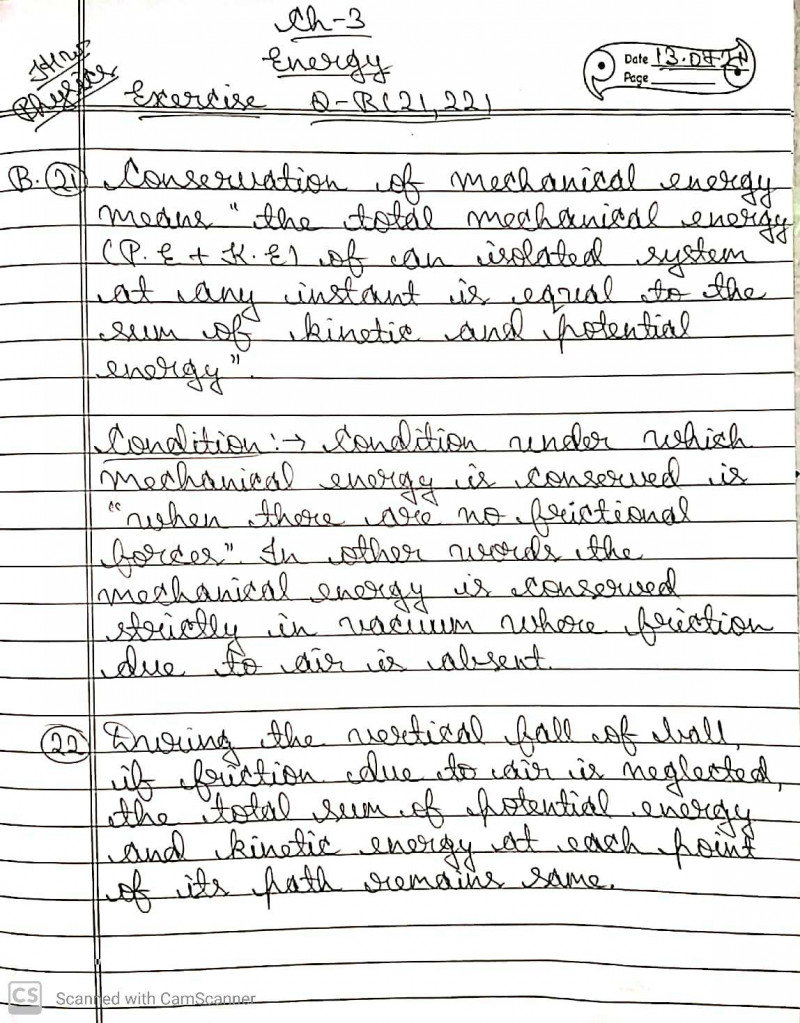 Ch-3
Energy
H.W
Physics
Date 13.07.21
Page
Exercise Q-B(21,22)
B. 21 Conservation of mechanical energy
means "the total mechanical energy
(P.E + K.E) of an isolated system
at any instant is equal to the
sum of kinetic and potential
energy".
Condition :→ Condition under which
mechanical energy is conserved is
"when there are no frictional
forces". In other words the
mechanical energy is conserved
strictly in vacuum where friction
due to air is absent.
22 During the vertical fall of ball,
if friction due to air is neglected,
the total sum of potential energy
and kinetic energy at each point
of its path remains same.
CS Scanned with CamScanner